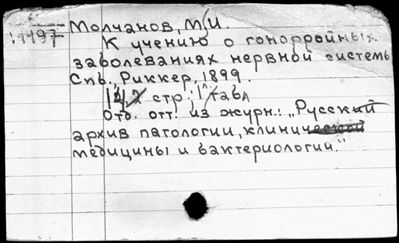 Молчанов, М.И.
:1497 К учению о гонорройных
заболеваниях нервной систем
Спб., Риккер, 1899.
14, стр; 1 табл
Отд. отт. из журн.: "Русский
архив патологии, клинической
медицины и бактериологии."